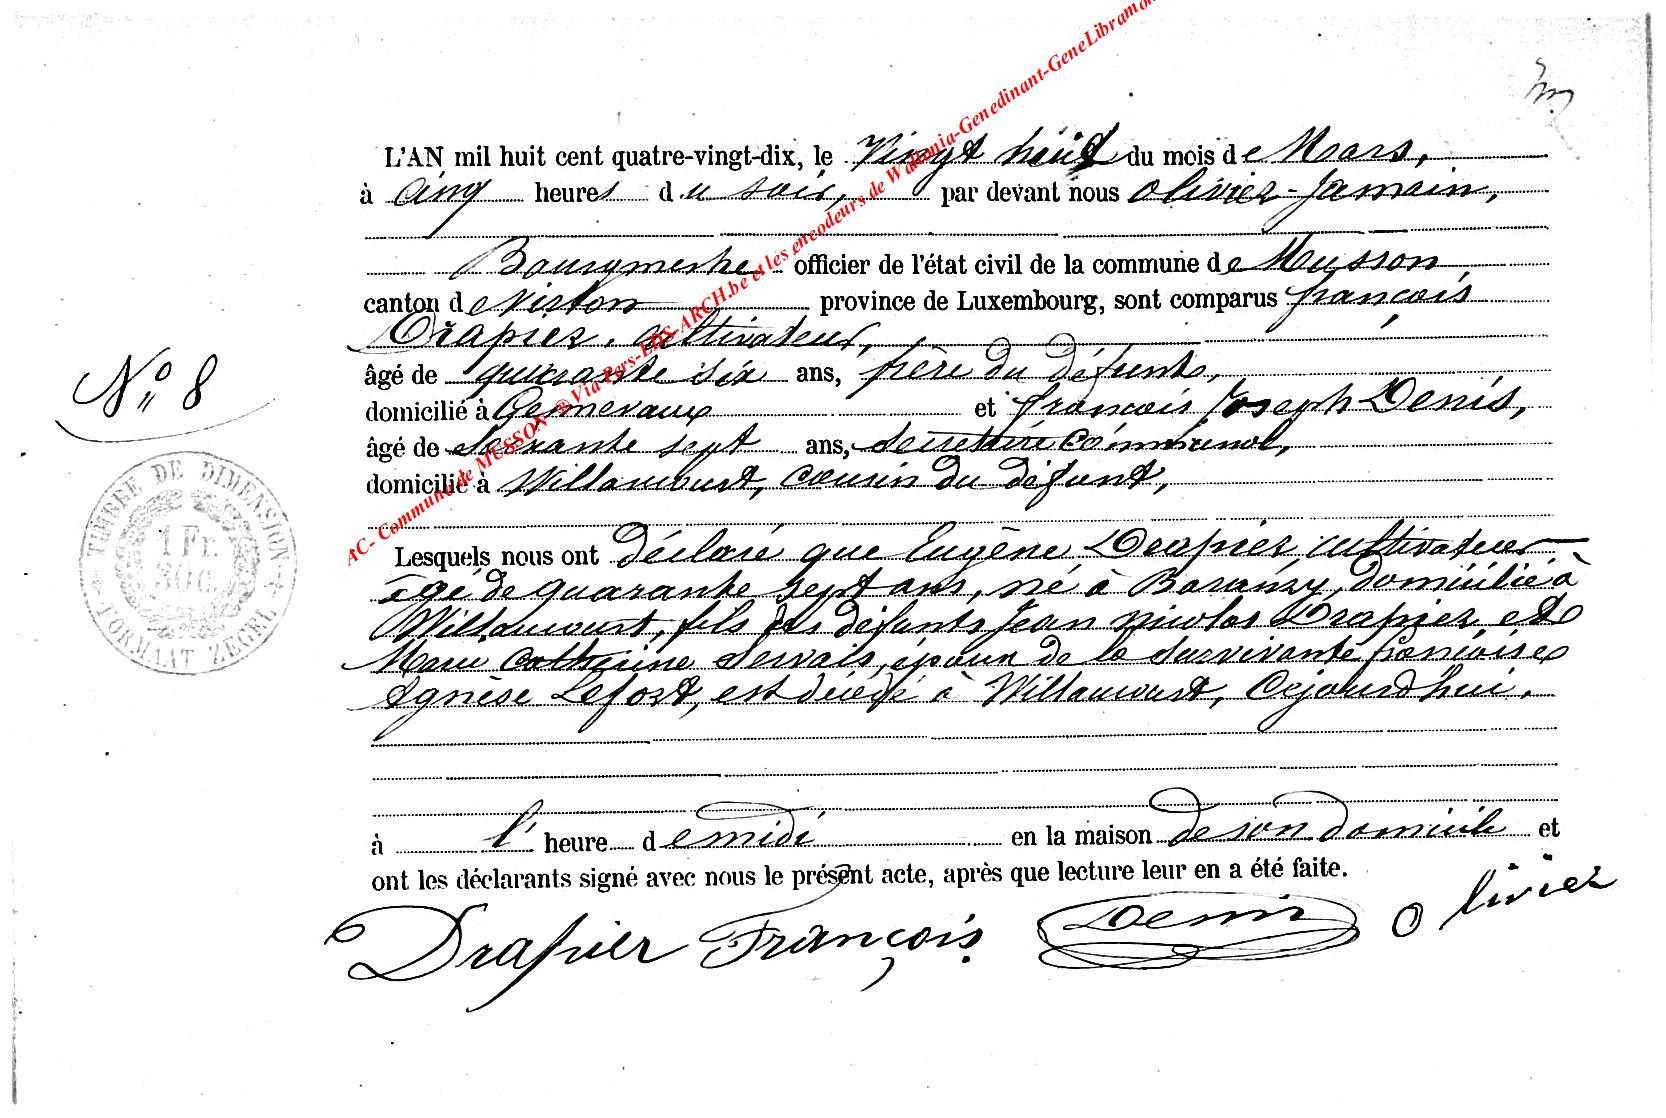 L'AN mil huit cent quatre-vingt-dix, le Vingt huit du mois de Mars,
à cinq heures du soir, par devant nous Olivier-Jamain,
Bourgmestre officier de l'état civil de la commune de Musson,
canton de Virton province de Luxembourg, sont comparus françois
Drapier, cultivateur,
âgé de quarante six ans, frère du défunt,
N° 8
domicilié à Gennevaux et françois Joseph Denis,
âgé de soixante sept ans, secrétaire communal,
domicilié à Willancourt, cousin du défunt,
TIMBRE DE DIMENSION
1 Fr.
30 C.
FORMAAT ZEGEL
Lesquels nous ont déclaré que Eugène Drapier, cultivateur
âgé de quarante sept ans, né à Baranzy, domicilié à
Willancourt, fils des défunts Jean Nicolas Drapier et
Marie Catherine Servais, époux de la survivante françoise
Agnèse Lefort, est décédé à Willancourt, cejourd'hui,
à l' heure de midi en la maison de son domicile et
ont les déclarants signé avec nous le présent acte, après que lecture leur en a été faite.
Drapier François Denis Olivier
AC- Commune de MUSSON ® Via Pers-EHS-ARCH.be et les encodeurs de Wallonia-Genedinant-GeneLibramon